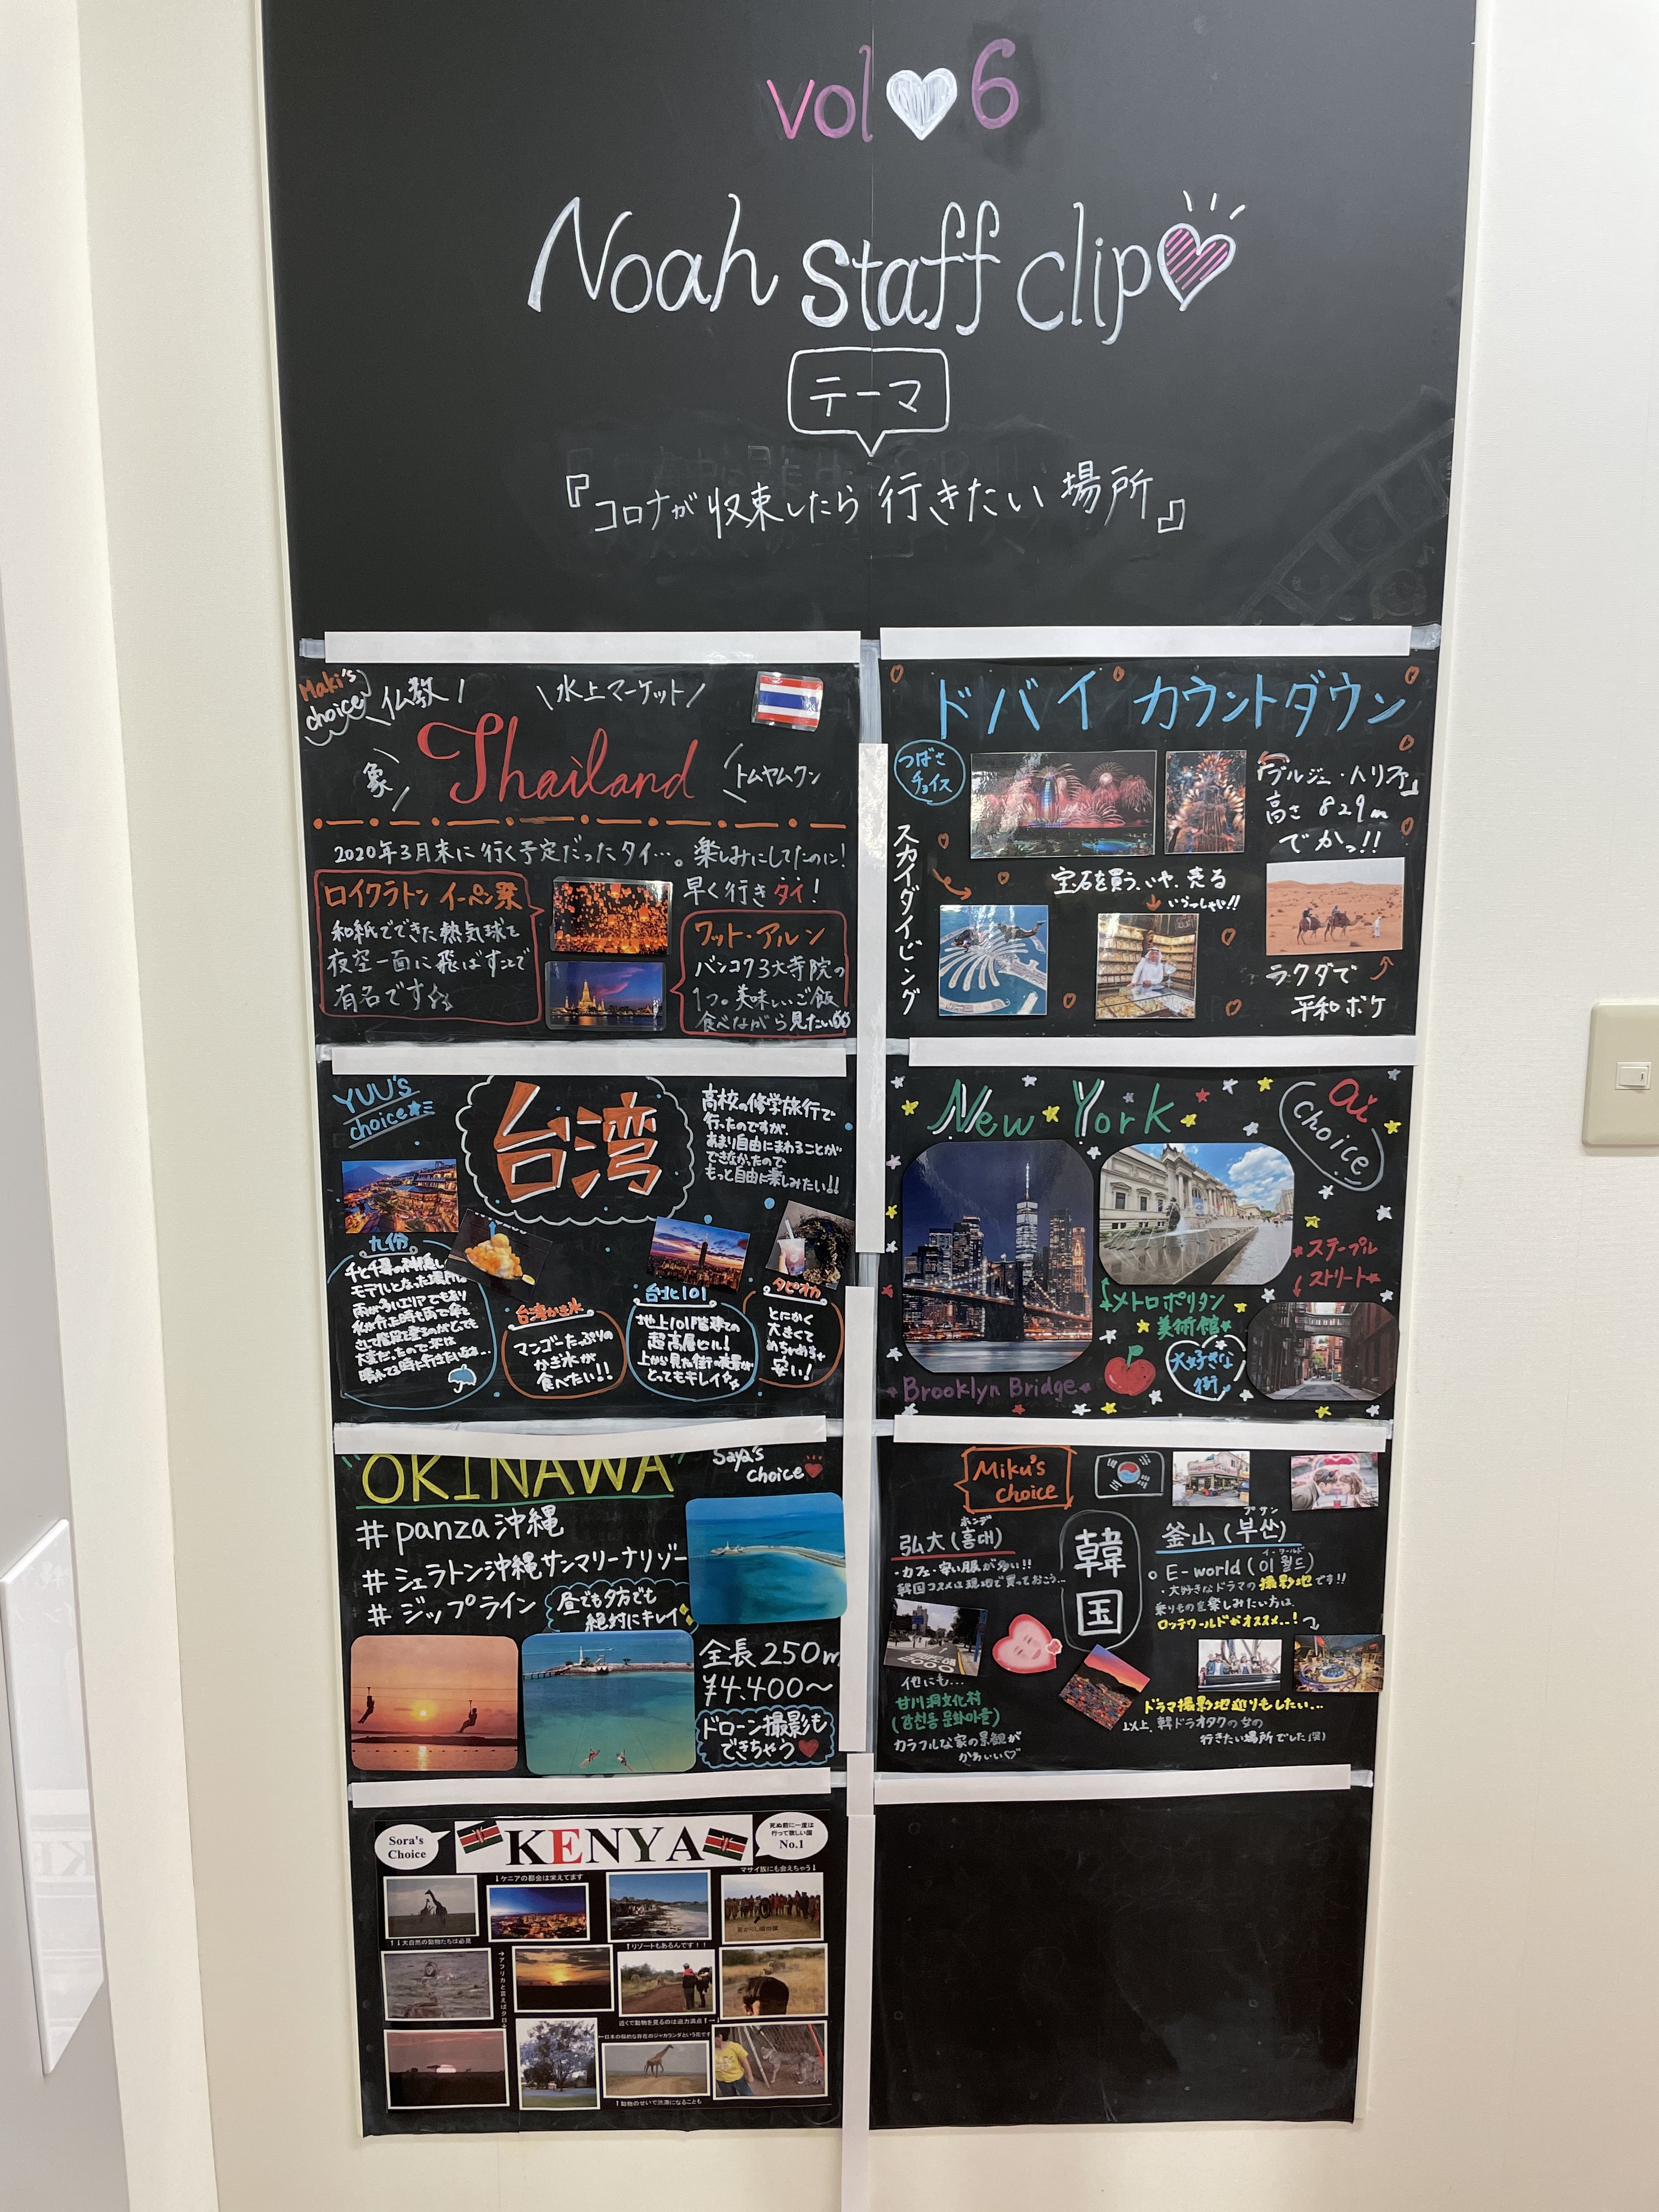 vol 6
Noah staff clip
テーマ
『コロナが収束したら行きたい場所』
Maki's choice
仏教
水上マーケット
象
Thailand
トムヤムクン
2020年3月末に行く予定だったタイ…。楽しみにしてたのに!
早く行きタイ!
ロイクラトン イーペン祭
和紙でできた熱気球を
夜空一面に飛ばすことで
有名です
ワット・アルン
バンコク3大寺院の
1つ。美味しいご飯
食べながら見たい
ドバイ カウントダウン
つばさ
チョイス
『ブルジュ・ハリファ』
高さ 829m
でかっ!!
スカイダイビング
宝石を買う、いや、売る
いらっしゃい!!
ラクダで
平和ボケ
YUU's
choice
台湾
高校の修学旅行で
行ったのですが、
あまり自由にまわることが
できなかったので
もっと自由に楽しみたい!!
九份
千と千尋の神隠し
モデルとなった場所!
雨が多いエリアでもあり
私が行った時も雨で傘を
さして階段を登るのがとても
大変だったので次は
晴れてる時に行きたいなぁ…
台湾かき氷
マンゴーたっぷりの
かき氷が
食べたい!!
台北101
地上101階建ての
超高層ビル!
上から見た街の夜景が
とってもキレイ
タピオカ
とにかく
大きくて
めちゃめちゃ
安い!
New York
Ai
choice
ステープル
ストリート
メトロポリタン
美術館
大好きな
街
Brooklyn Bridge
OKINAWA
Saya's
choice
#panza沖縄
#シェラトン沖縄サンマリーナリゾー
#ジップライン
昼でも夕方でも
絶対にキレイ
全長250m
¥4,400〜
ドローン撮影も
できちゃう
Miku's
choice
韓国
ホンデ
弘大(홍대)
・カフェ・安い服が多い!!
韓国コスメは現地で買っておこう…
プサン
釜山(부산)
イーワールド
E-world(이월드)
・大好きなドラマの撮影地です!!
乗りものを楽しみたい方は、
ロッテワールドがオススメ…!
他にも…
甘川洞文化村
(감천동 문화마을)
カラフルな家の景観が
かわいい♡
ドラマ撮影地巡りもしたい…
以上、韓ドラオタクの女の
行きたい場所でした(笑)
Sora's
Choice
KENYA
死ぬ前に一度は
行って欲しい国
No.1
↓ケニアの都会は栄えてます
マサイ族にも会えちゃう↓
↑↓大自然の動物たちは必見
↑リゾートもあるんです!!
→アフリカと言えば夕日→
近くで動物を見るのは迫力満点!→
←日本の桜的な存在のジャカランダという花です
↑動物のせいで渋滞になることも